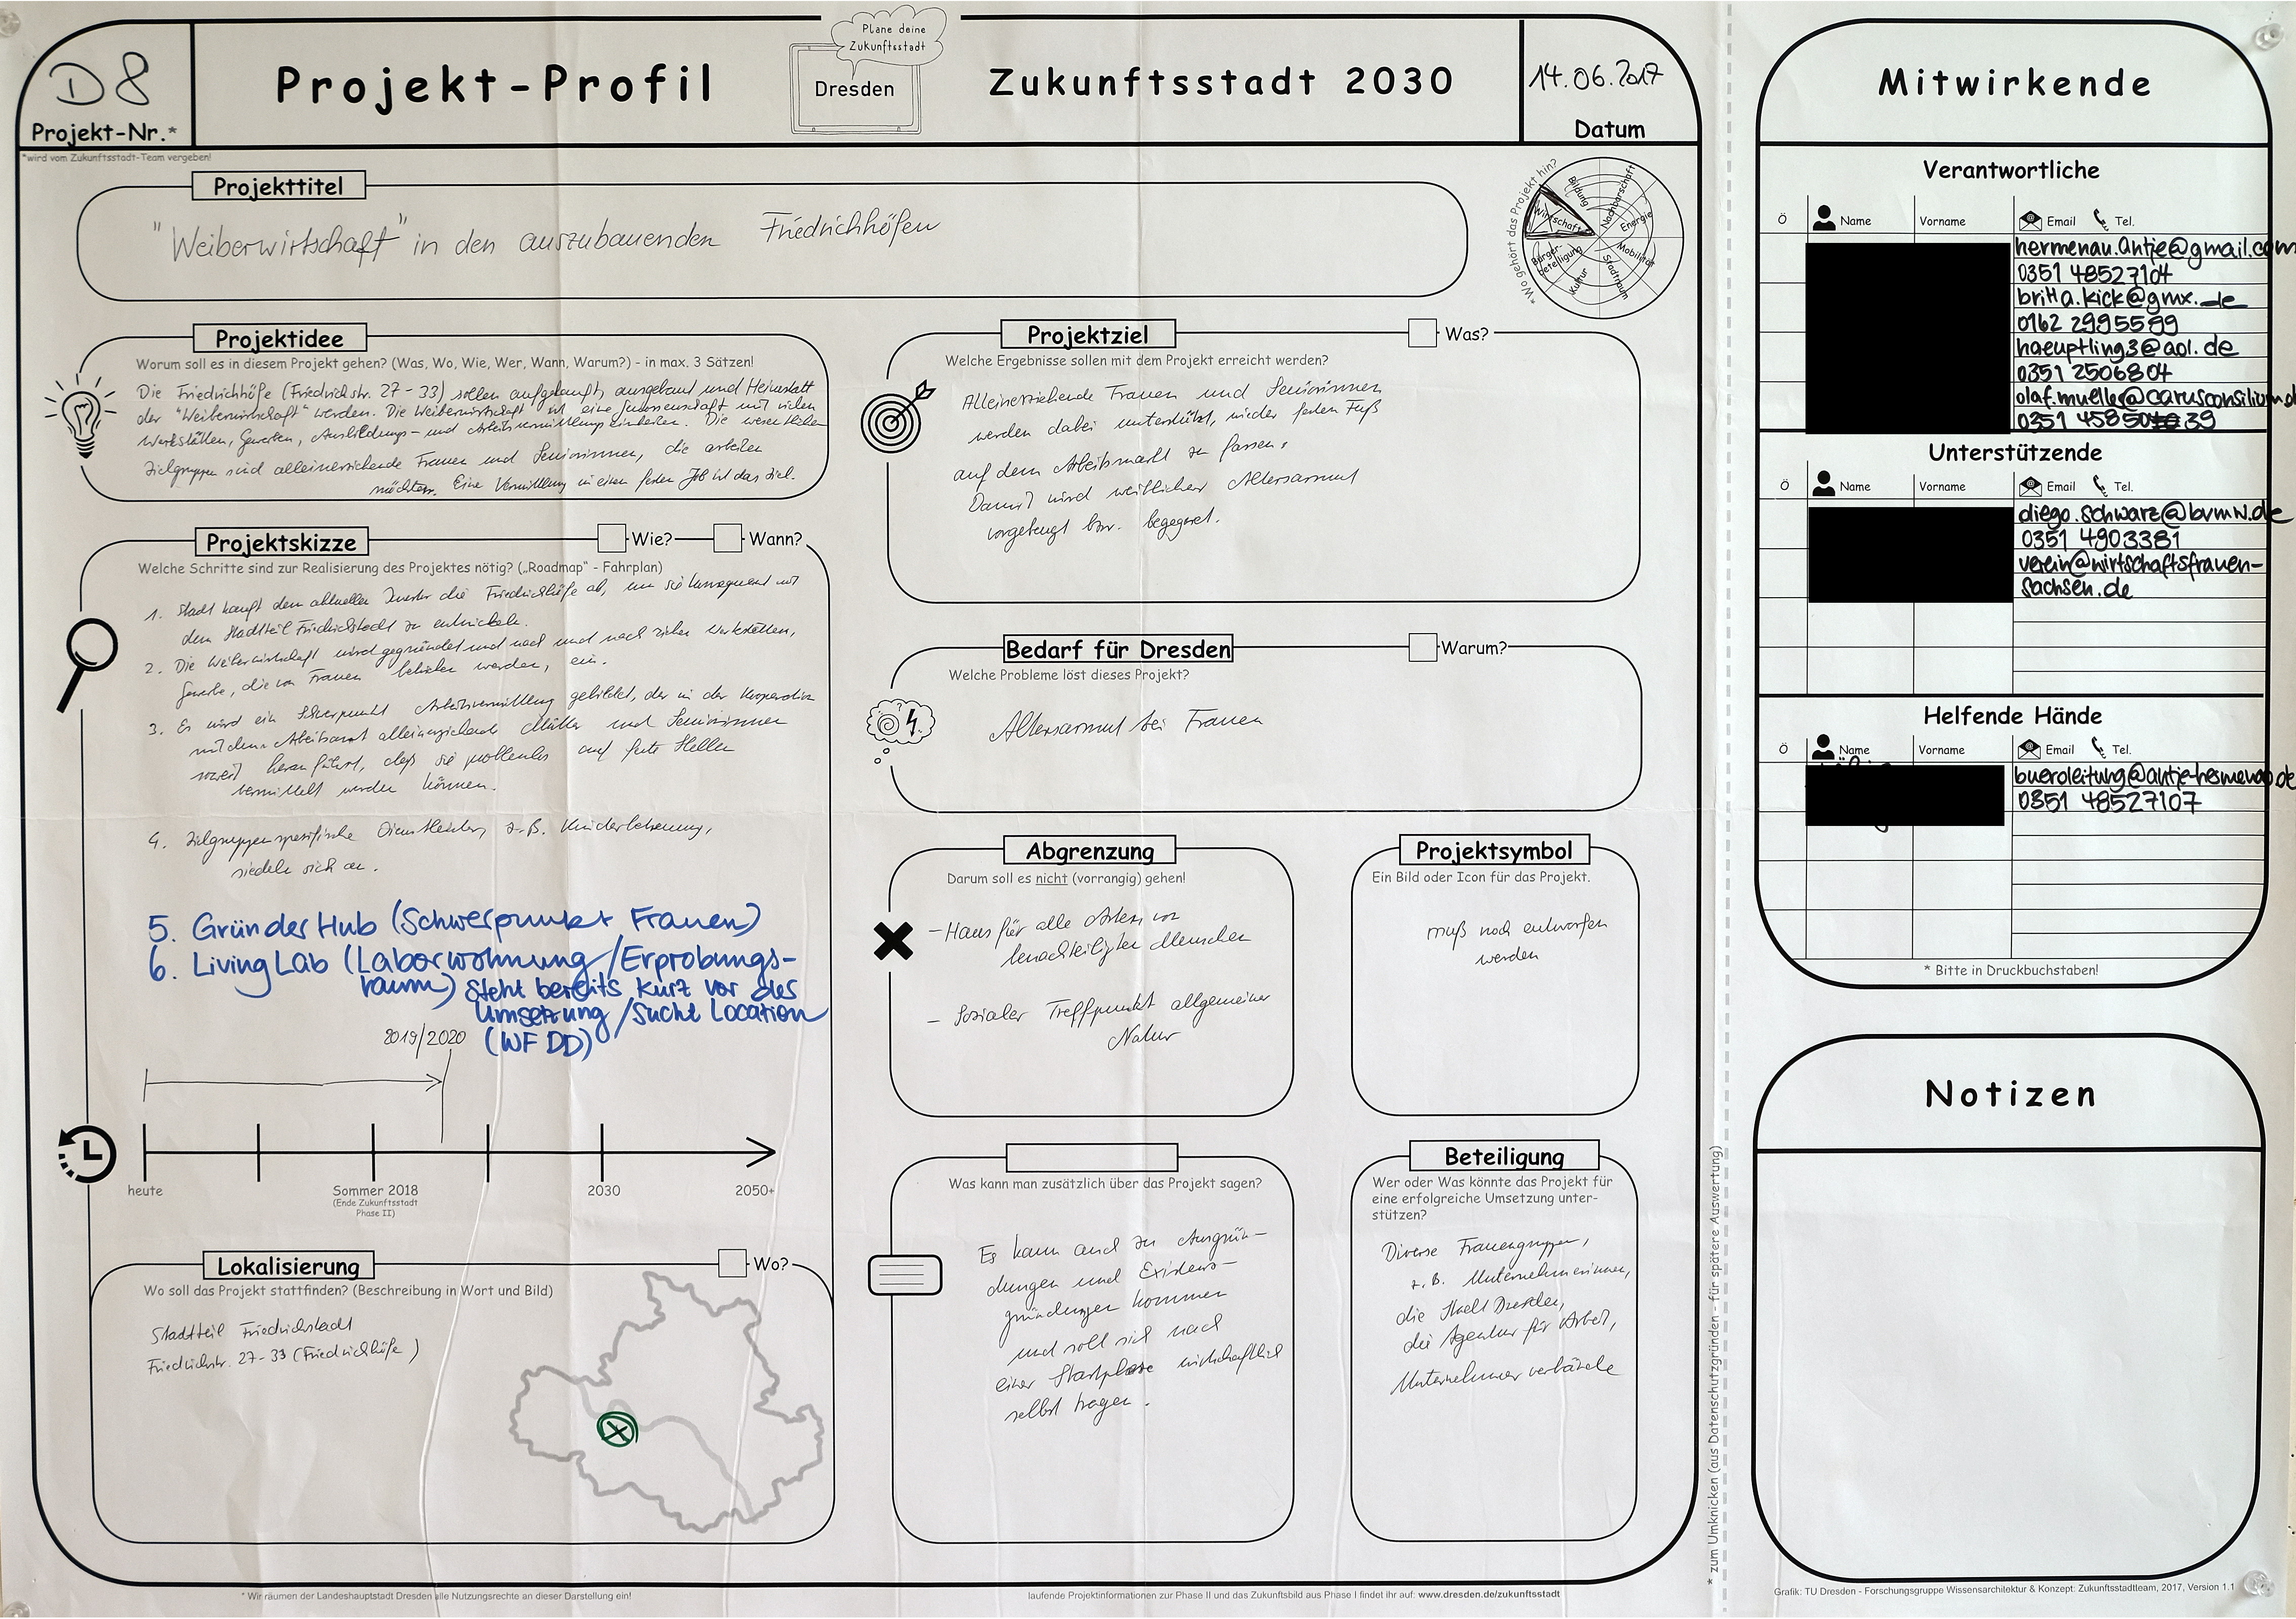 Plane deine
Zukunftsstadt
Dresden
D8
Projekt-Nr.*
Projekt-Profil
Zukunftsstadt 2030
14.06.2017
Datum
*wird vom Zukunftsstadt-Team vergeben!
Projekttitel
"Weiberwirtschaft" in den auszubauenden Friedrichhöfen
*Wo gehört das Projekt hin?
Bildung
Nachbarschaft
Energie
Mobilität
Stadtraum
Kultur
Bürger-
beteiligung
Wirtschaft
Projektidee
Worum soll es in diesem Projekt gehen? (Was, Wo, Wie, Wer, Wann, Warum?) - in max. 3 Sätzen!
Die Friedrichhöfe (Friedrichstr. 27-33) sollen aufgekauft, ausgebaut und Heimstatt
der "Weiberwirtschaft" werden. Die Weiberwirtschaft ist eine Genossenschaft mit vielen
Werkstätten, Gewerken, Ausbildungs- und Arbeitsvermittlung einheiten. Die wesentlichen
Zielgruppen sind alleinerziehende Frauen und Seniorinnen, die arbeiten
möchten. Eine Vermittlung in einen festen Job ist das Ziel.
Projektskizze
Wie?
Wann?
Welche Schritte sind zur Realisierung des Projektes nötig? („Roadmap“ - Fahrplan)
1. Stadt kauft dem aktuellen Investor die Friedrichhöfe ab, um sie konsequent mit
dem Stadtteil Friedrichstadt zu entwickeln.
2. Die Weiberwirtschaft wird gegründet und nach und nach ziehen Werkstätten,
Gewerbe, die von Frauen betrieben werden, ein.
3. Es wird ein Schwerpunkt Arbeitsvermittlung gebildet, der in der Kooperation
mit dem Arbeitsamt alleinerziehende Mütter und Seniorinnen
soweit heranführt, daß sie problemlos auf feste Stellen
vermittelt werden können.
4. Zielgruppenspezifische Dienstleister, z.B. Kinderbetreuung,
siedeln sich an.
5. Gründer Hub (Schwerpunkt Frauen)
6. Living Lab (Laborwohnung/Erprobungs-
raum) steht bereits kurz vor der
Umsetzung/sucht Location
(WF DD)
2019/2020
heute
Sommer 2018
(Ende Zukunftsstadt
Phase II)
2030
2050+
Lokalisierung
Wo?
Wo soll das Projekt stattfinden? (Beschreibung in Wort und Bild)
Stadtteil Friedrichstadt
Friedrichstr. 27-33 (Friedrichhöfe)
Projektziel
Was?
Welche Ergebnisse sollen mit dem Projekt erreicht werden?
Alleinerziehende Frauen und Seniorinnen
werden dabei unterstützt, wieder festen Fuß
auf dem Arbeitsmarkt zu fassen.
Damit wird weiblicher Altersarmut
vorgebeugt bzw. begegnet.
Bedarf für Dresden
Warum?
Welche Probleme löst dieses Projekt?
Altersarmut bei Frauen
Abgrenzung
Darum soll es nicht (vorrangig) gehen!
- Haus für alle Arten von
benachteiligten Menschen
- Sozialer Treffpunkt allgemeiner
Natur
Projektsymbol
Ein Bild oder Icon für das Projekt.
muß noch entworfen
werden
Was kann man zusätzlich über das Projekt sagen?
Es kann auch zu Ausgrün-
dungen und Existenz-
gründungen kommen
und soll sich nach
einer Startphase wirtschaftlich
selbst tragen.
Beteiligung
Wer oder Was könnte das Projekt für
eine erfolgreiche Umsetzung unter-
stützen?
Diverse Frauengruppen,
z.B. Unternehmerinnen,
die Stadt Dresden,
die Agentur für Arbeit,
Unternehmerverbände
* Wir räumen der Landeshauptstadt Dresden alle Nutzungsrechte an dieser Darstellung ein!
laufende Projektinformationen zur Phase II und das Zukunftsbild aus Phase I findet ihr auf: www.dresden.de/zukunftsstadt
* zum Umknicken (aus Datenschutzgründen - für spätere Auswertung)
Mitwirkende
Verantwortliche
Ö Name Vorname Email Tel.
hermenau.antje@gmail.com
0351 48527104
britta.kick@gmx.de
0162 2995599
haeuptling3@aol.de
0351 2506804
olaf.mueller@carusconsilium.d
0351 4585039
Unterstützende
Ö Name Vorname Email Tel.
diego.schwarz@bvmw.de
0351 4903381
verein@wirtschaftsfrauen-
sachsen.de
Helfende Hände
Ö Name Vorname Email Tel.
bueroleitung@antje-hermenau.de
0351 48527107
* Bitte in Druckbuchstaben!
Notizen
Grafik: TU Dresden - Forschungsgruppe Wissensarchitektur & Konzept: Zukunftsstadtteam, 2017, Version 1.1